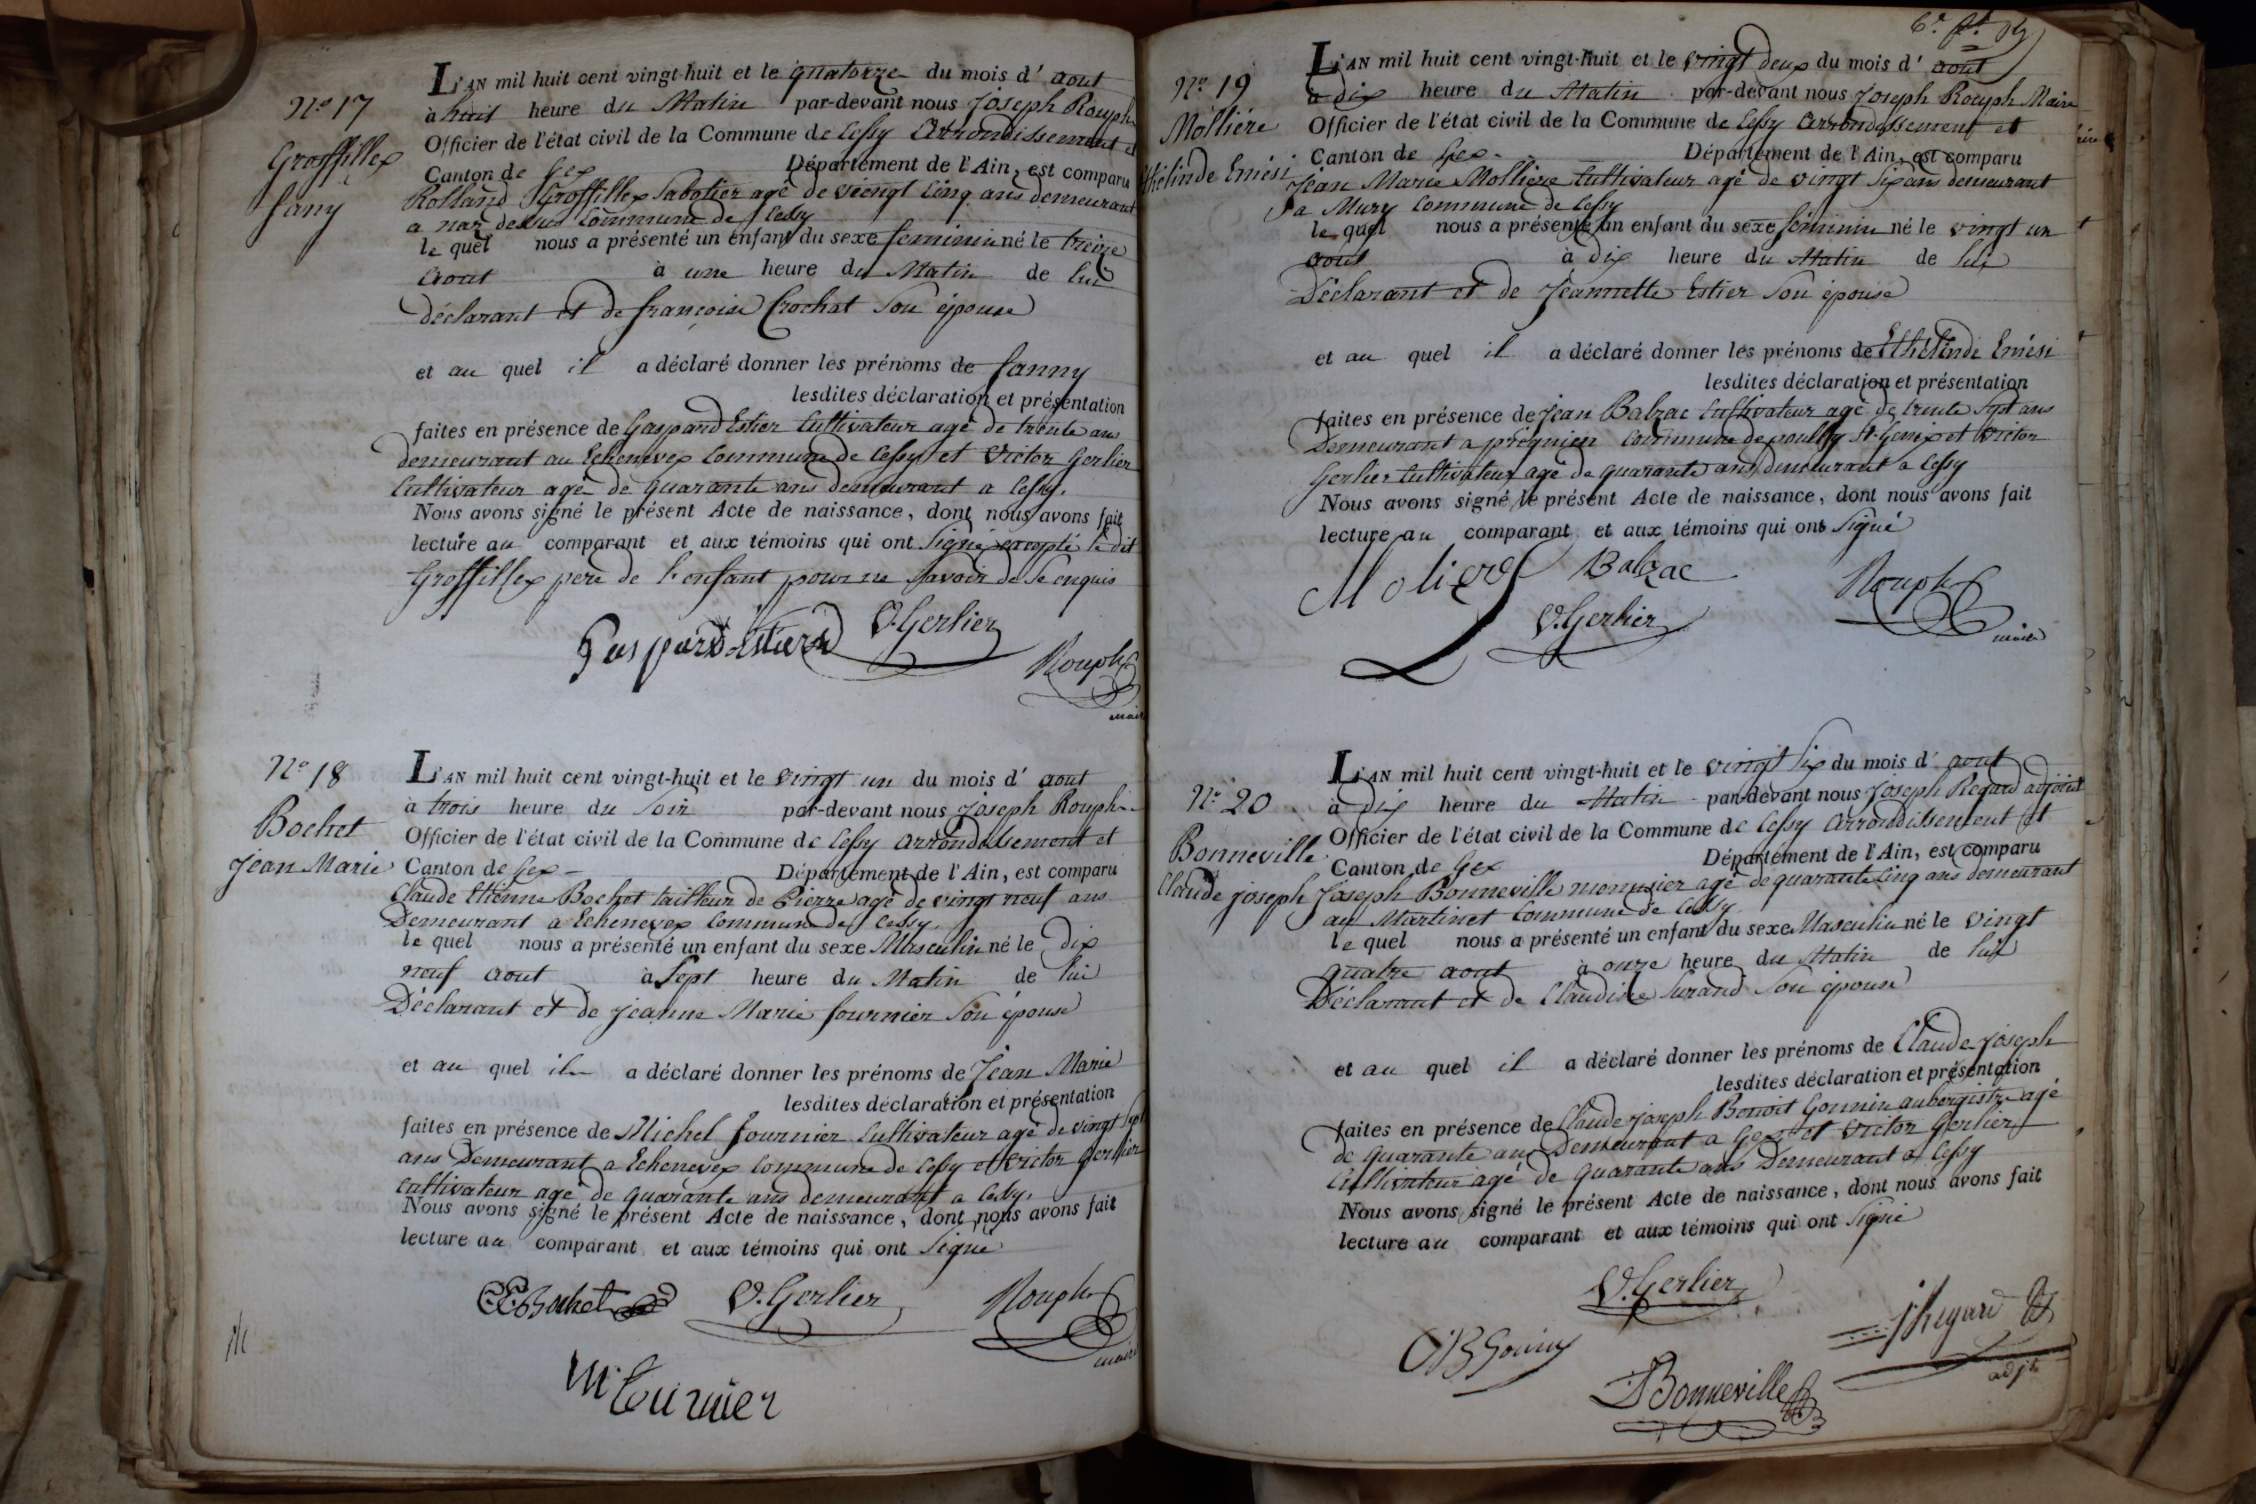 N.o 17
Groffillex
fany
L'AN mil huit cent vingt-huit et le quatorze du mois d' aout
à huit heure du Matin par-devant nous Joseph Rouph
Officier de l'état civil de la Commune de Cessy Arrondissement et
Canton de Gex Département de l'Ain, est comparu
Rolland Groffillex Sabotier agé de viengt cinq ans demeurant
a nar dessus Commune de Cessy
le quel nous a présenté un enfant du sexe feminin né le treize
aout à une heure du Matin de lui
déclarant et de françoise Crochat Son épouse
et au quel il a déclaré donner les prénoms de fanny
lesdites déclaration et présentation
faites en présence de Gaspard Estier Cultivateur agé de trente ans
demeurant au Echenevex Commune de Cessy et Victor Gerlier
Cultivateur agé de quarante ans demeurant a Cessy.
Nous avons signé le présent Acte de naissance, dont nous avons fait
lecture au comparant et aux témoins qui ont Signé excepté le dit
Groffillex pere de l'enfant pour ne Savoir de Se enquis
Gaspard Estier V. Gerlier
Rouph
maire
N.o 18
Bochet
Jean Marie
L'AN mil huit cent vingt-huit et le vingt un du mois d' aout
à trois heure du Soir par-devant nous Joseph Rouph
Officier de l'état civil de la Commune de Cessy arrondissement et
Canton de Gex Département de l'Ain, est comparu
Claude Etienne Bochet tailleur de Pierre agé de vingt neuf ans
Demeurant a Echenevex Commune de Cessy.
le quel nous a présenté un enfant du sexe Masculin né le dix
neuf aout à Sept heure du Matin de lui
Déclarant et de jeanne Marie fournier Son épouse
et au quel il a déclaré donner les prénoms de Jean Marie
lesdites déclaration et présentation
faites en présence de Michel fournier Cultivateur agé de vingt
ans Demeurant a Echenevex Commune de Cessy et Victor Gerlier
Cultivateur agé de quarante ans demeurant a Cessy.
Nous avons signé le présent Acte de naissance, dont nous avons fait
lecture au comparant et aux témoins qui ont Signé
CEBochet V. Gerlier Rouph
maire
M. fournier
N.o 19
Mollière
Ethélinde Emési
L'AN mil huit cent vingt-huit et le vingt deux du mois d' aout
à dix heure du Matin par-devant nous Joseph Rouph Maire
Officier de l'état civil de la Commune de Cessy Arrondissement et
Canton de Gex Département de l'Ain, est comparu
Jean Marie Mollière Cultivateur agé de vingt six ans demeurant
a Mury Commune de Cessy
le quel nous a présenté un enfant du sexe féminin né le vingt un
aout à dix heure du Matin de lui
Déclarant et de Jeannette Estier Son épouse
et au quel il a déclaré donner les prénoms de Ethélinde Emési
lesdites déclaration et présentation
faites en présence de Jean Balzac Cultivateur agé de trente Sept ans
Demeurant a prégnien Commune de pouilly St. Genix et Victor
Gerlier Cultivateur agé de quarante ans demeurant a Cessy
Nous avons signé le présent Acte de naissance, dont nous avons fait
lecture au comparant et aux témoins qui ont Signé
Moliere Balzac Rouph
V. Gerlier maire
N.o 20
Bonneville
Claude joseph
L'AN mil huit cent vingt-huit et le vingt Six du mois d' aout
à dix heure du Matin par-devant nous Joseph Regard adjoint
Officier de l'état civil de la Commune de Cessy Arrondissement et
Canton de Gex Département de l'Ain, est comparu
Joseph Bonneville menusier agé de quarante cinq ans demeurant
au Martinet Commune de Cessy
le quel nous a présenté un enfant du sexe Masculin né le vingt
quatre aout à onze heure du Matin de lui
Déclarant et de Claudine Surand Son épouse
et au quel il a déclaré donner les prénoms de Claude joseph
lesdites déclaration et présentation
faites en présence de Claude joseph Benoit Gounin aubergiste agé
de quarante ans Demeurant a Gex et Victor Gerlier
Cultivateur agé de quarante ans Demeurant a Cessy
Nous avons signé le présent Acte de naissance, dont nous avons fait
lecture au comparant et aux témoins qui ont Signé
V. Gerlier
J Regard
adjt
Bonneville